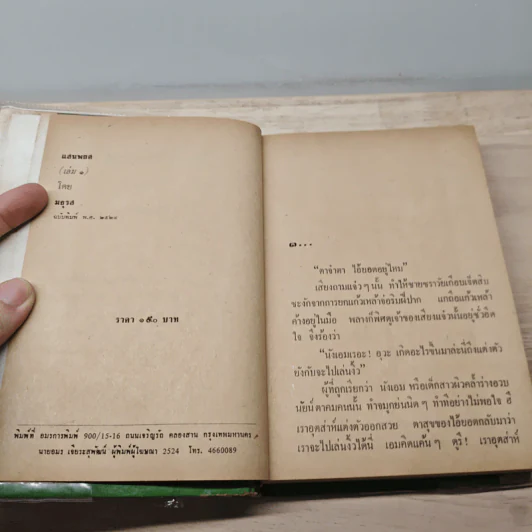 แสนพยศ
(เล่ม ๑)
โดย
มธุรส
ฉบับพิมพ์ พ.ศ. ๒๕๒๔
ราคา ๑๕๐ บาท
พิมพ์ที่ อมรการพิมพ์ 900/15-16 ถนนเจริญรัถ คลองสาน กรุงเทพมหานคร
นายอมร เจียระสุพัฒน์ ผู้พิมพ์ผู้โฆษณา 2524 โทร. 4660089
๑...
“ตาจ๋าตา ไอ้ยอดอยู่ไหน”
เสียงถามแจ๋ว ๆ นั้น ทำให้ชายชราวัยเกือบเจ็ดสิบ
ชะงักจากการยกแก้วเหล้าจ่อริมฝีปาก แกถือแก้วเหล้า
ค้างอยู่ในมือ พลางก็พิศดูเจ้าของเสียงแจ๋วนั้นอยู่ชั่วอึด
ใจ จึงร้องว่า
“นังเอมเรอะ! อุวะ เกิดอะไรขึ้นมาล่ะนี่ถึงแต่งตัว
ยังกับจะไปเล่นงิ้ว”
ผู้ที่ถูกเรียกว่า นังเอม หรือเด็กสาวผิวคล้ำร่างอวบ
นัยน์ตาคมคนนั้น ทำจมูกย่นนิด ๆ ทำทีอย่างไม่พอใจ ฮึ
เราอุตส่าห์แต่งตัวออกสวย ตาสุขของไอ้ยอดกลับมาว่า
เราจะไปเล่นงิ้วได้นี่ เอมคิดแค้น ๆ ดูรึ! เราอุตส่าห์